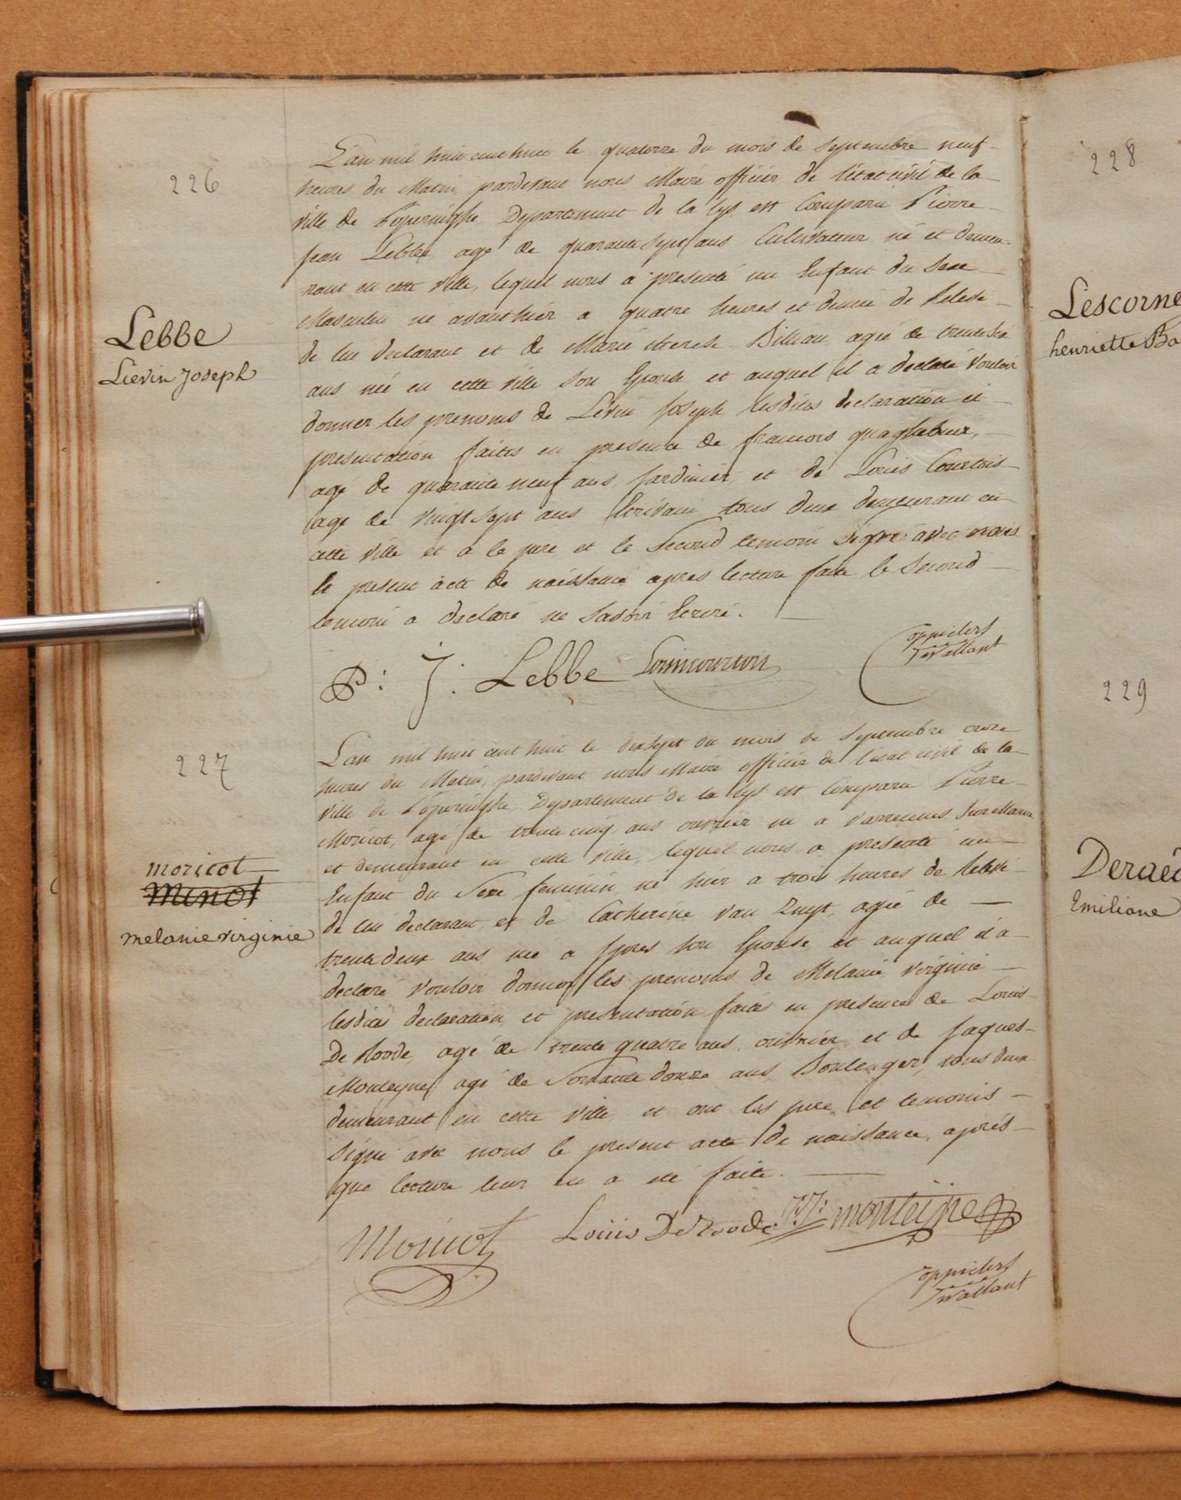 226
Lebbe
Lievin Joseph
L'an mil huit cent huit le quatorze du mois de septembre neuf
heures du Matin, pardevant nous Maire officier de l'état civil de la
ville de Poperinghe Departement de la Lys est Comparu Pierre
Jean Lebbe agé de quarante sept ans Cultivateur né et demeu-
rant en cette ville, lequel nous a presenté un Enfant du sexe
Masculin né avant hier a quatre heures et demie de relevé
de lui declarant et de Marie therese agée de trente six
ans née en cette ville son Epouse et auquel il a declaré vouloir
donner les prenoms de Lévin Joseph lesdites declaration et
presentation faites en presence de francois
agé de quarante neuf ans Jardinier et de Louis Courtois
agé de vingt sept ans Ecrivain tous deux demeurant en
cette ville et a le pere et le Second temoin signé avec nous
le present acte de naissance apres lecture faite le Second
temoin a declaré ne savoir Ecrire.
P: J: Lebbe
227
moricot
Minot
melanie virginie
L'an mil huit cent huit le dixsept du mois de septembre onze
heures du Matin, pardevant nous Maire officier de l'état civil de la
ville de Poperinghe Departement de la Lys est Comparu Pierre
Moricot, agé de trente cinq ans ouvrier né a
et demeurant en cette ville, lequel nous a presenté un
Enfant du Sexe feminin, né hier a trois heures de relevé
de lui declarant et de Catherine Van Zuyt, agée de
trente deux ans née a Ypres son Epouse et auquel il a
declaré vouloir donner les prenoms de Mélanie virginie
lesdites declaration et presentation faites en presence de Louis
De Roode, agé de trente quatre ans ouvrier et de Jaques
Monteyne agé de Soixante douze ans Boulanger, tous deux
demeurant en cette ville et ont les pere et temoins
Signé avec nous le present acte de naissance, aprés
que lecture leur en a été faite.
Moricot Louis De roode J: monteijne
228
Lescorne
henriette Ba
229
Emiliane